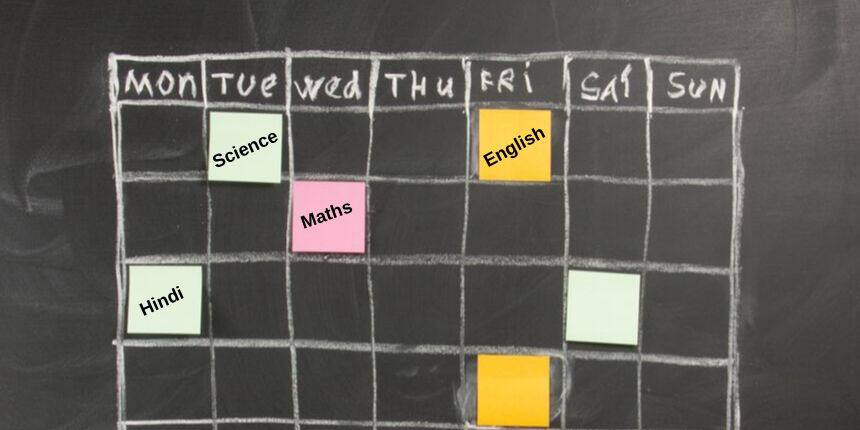 MON TUE Wed THU FRI SAT SUN
Science English
Maths
Hindi